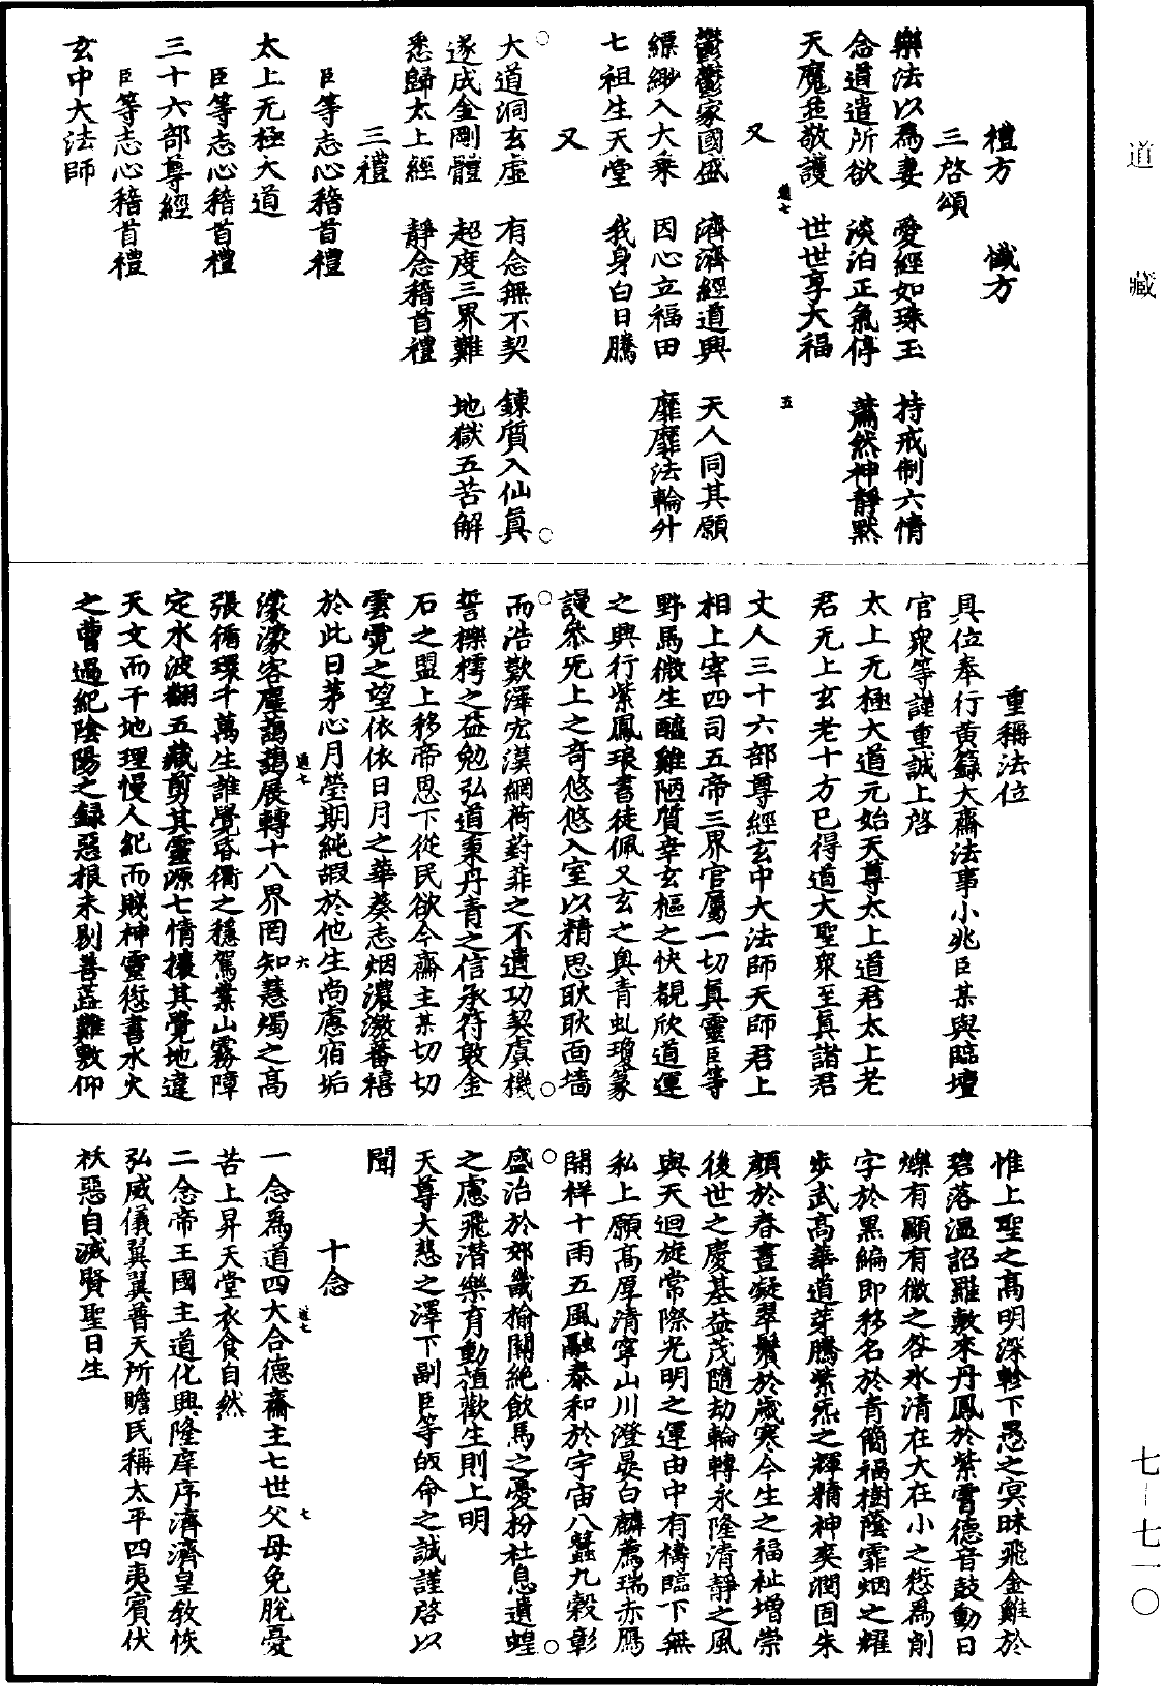 道藏
禮方　懺方
三啓頌
樂法以為妻　愛經如珠玉　持戒制六情
念道遣所欲　淡泊正氣停　蕭然神靜默
天魔並敬護　世世享大福
又
鬱鬱家國盛　濟濟經道興　天人同其願
縹緲入大乘　因心立福田　靡靡法輪升
七祖生天堂　我身白日騰
又
大道洞玄虛　有念無不契　鍊質入仙真
遂成金剛體　超度三界難　地獄五苦解
悉歸太上經　靜念稽首禮
三禮
臣等志心稽首禮
太上无極大道
臣等志心稽首禮
三十六部尊經
臣等志心稽首禮
玄中大法師
重稱法位
具位奉行黃籙大齋法事小兆臣某與臨壇
官衆等謹重誠上啓
太上无極大道元始天尊太上道君太上老
君无上玄老十方已得道大聖衆至真諸君
丈人三十六部尊經玄中大法師天師君上
相上宰四司五帝三界官屬一切真靈臣等
野馬微生醯雞陋質幸玄樞之快覩欣道運
之興行紫鳳琅書徒佩又玄之奥青虬瓊篆
謾叅旡上之奇悠悠入室以精思耿耿面墻
而浩歎澤宏漠網荷葑菲之不遺功契虞機
誓櫟樗之益勉弘道秉丹青之信承符敦金
石之盟上移帝恩下從民欲今齋主某切切
雲霓之望依依日月之華葵志烟濃潊蕃禧
於此日茅心月瑩期純嘏於他生尚慮宿垢
濛濛客塵藹藹展轉十八界罔知慧燭之高
張循環千萬生誰覺昏衢之穩駕業山霧障
定水波翻五藏剪其靈源七情攘其覺地違
天文而干地理慢人紀而賤神靈愆書水火
之曹過紀陰陽之録惡根未剔善芸難敷仰
惟上聖之高明深軫下愚之冥昧飛金雞於
碧落溫詔羅敷來丹鳳於紫霄德音鼓動日
爍有顯有微之咎氷清在大在小之愆為削
字於黑編即移名於青簡福樹蔭霏烟之耀
步武高華道芽騰紫炁之輝精神爽潤固朱
顏於春晝凝翠鬢於歲寒今生之福祉增崇
後世之慶基益茂隨劫輪轉永隆清靜之風
與天迴旋常際光明之運由中有檮臨下無
私上願高厚清寧山川澄晏白麟薦瑞赤鴈
開祥十雨五風融泰和於宇宙八蠶九穀彰
盛治於郊畿榆關絕飲馬之憂枌社息遺蝗
之慮飛潛樂育動植歡生則上明
天尊大悲之澤下副臣等皈命之誠謹啓以
聞
十念
一念為道四大合德齋主七世父母免脫憂
苦上昇天堂衣食自然
二念帝王國主道化興隆庠序濟濟皇教恢
弘威儀翼翼普天所瞻民稱太平四夷賓伏
袄惡自滅賢聖日生
七一七一〇